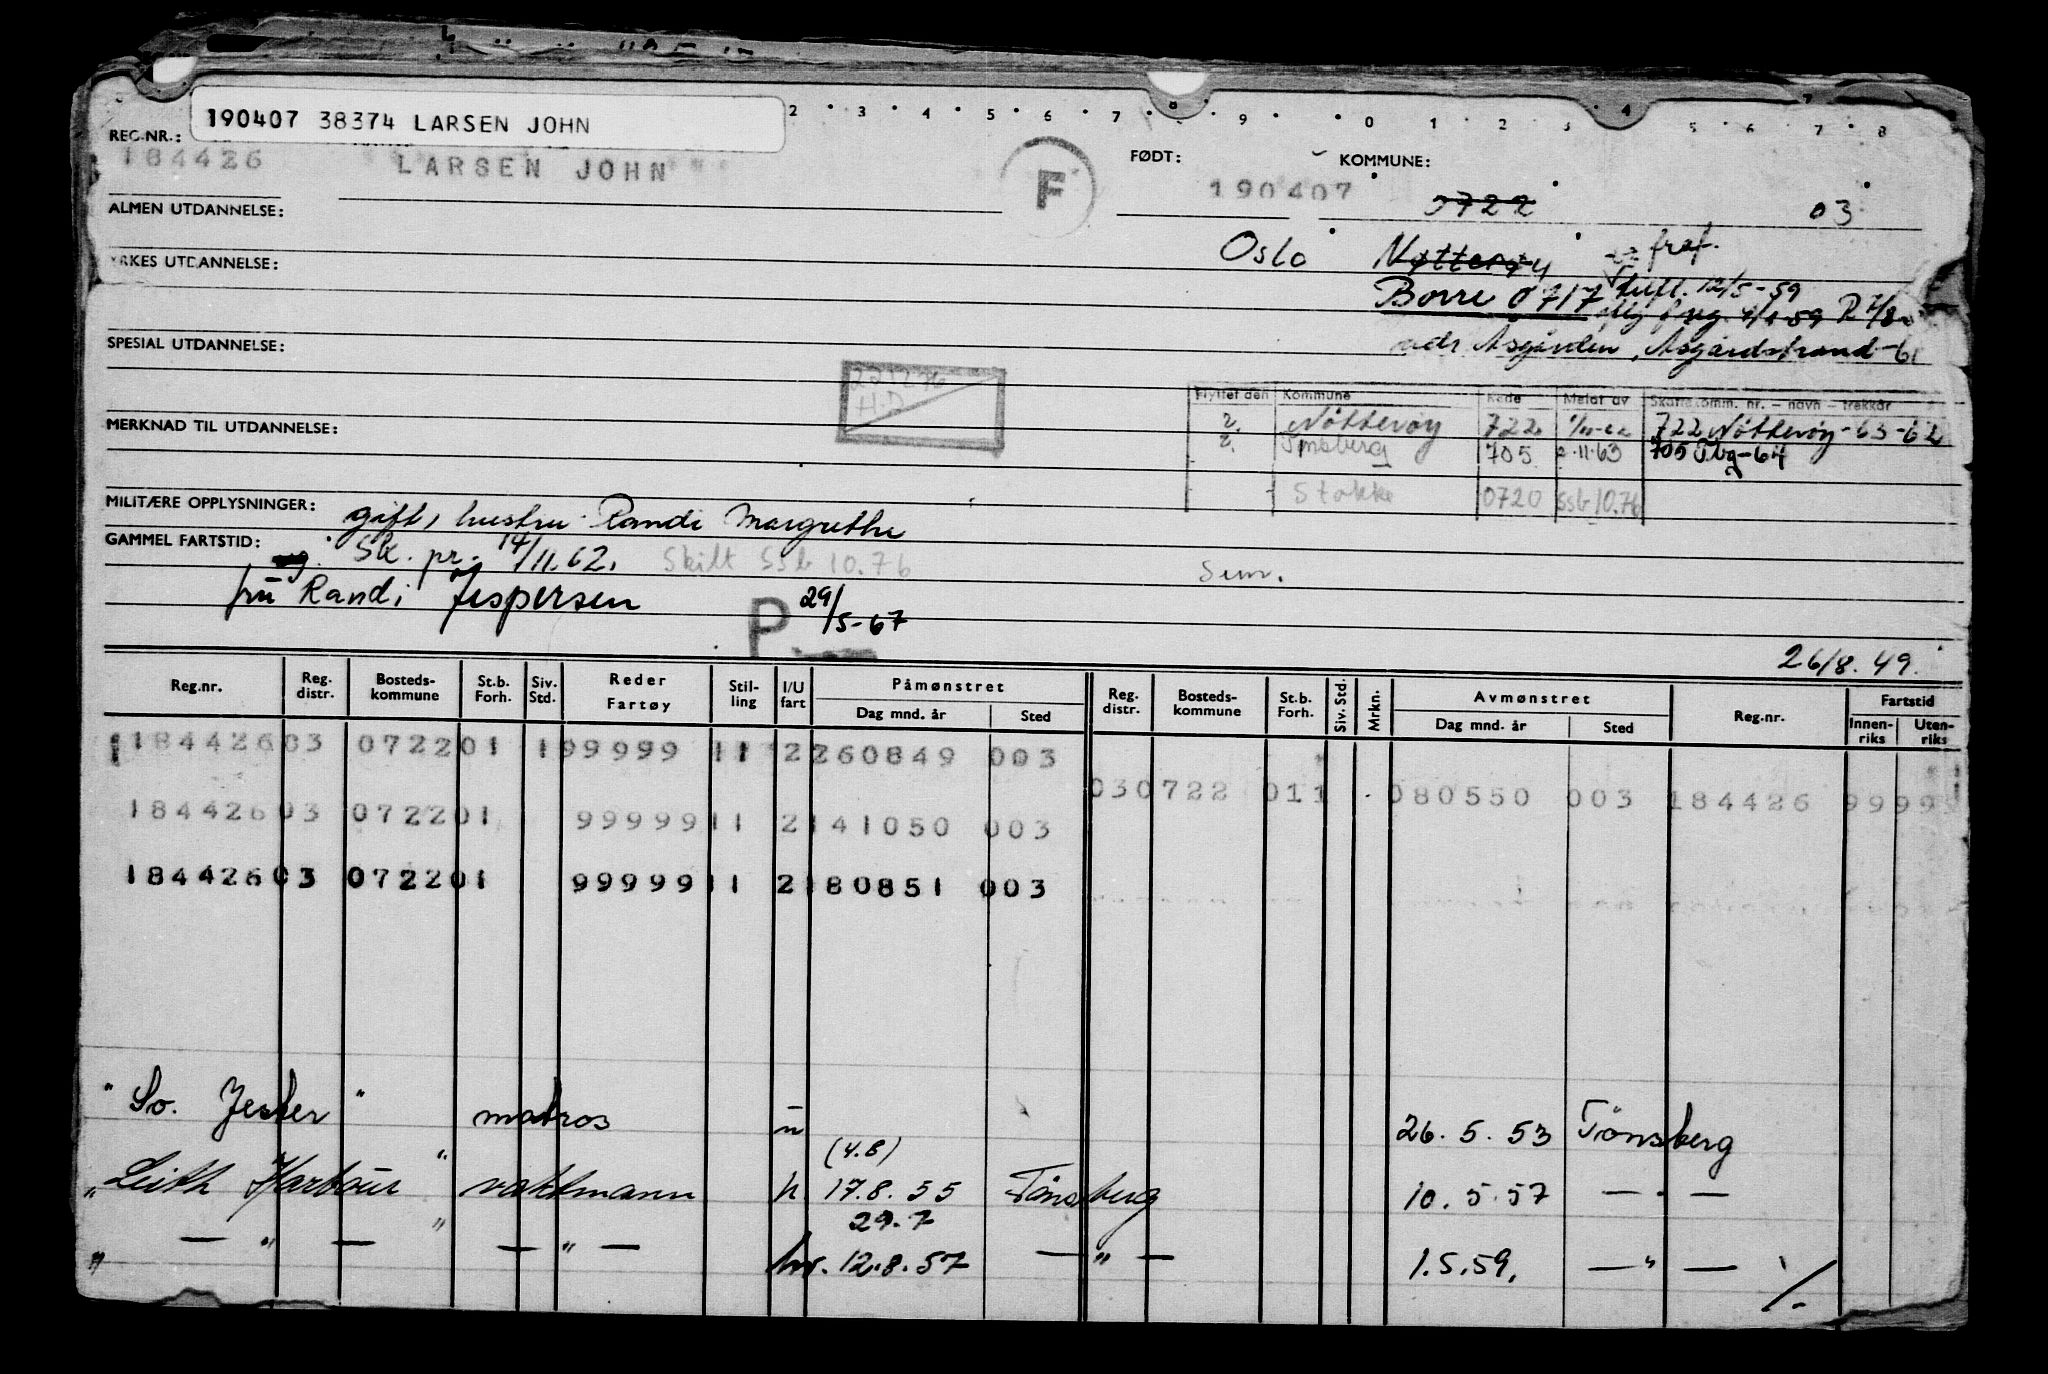 190407 38374 LARSEN JOHN
2 3 4 5 6 7 8 9 0 1 2 3 4 5 6 7 8
REG.NR.: FØDT: KOMMUNE:
184426 LARSEN JOHN F 190407 0722 03
ALMEN UTDANNELSE:
Oslo Nøtterøy fraf.
YRKES UTDANNELSE:
Borre 0717 12/5-59
adr Åsgården, Åsgårdstrand-61
SPESIAL UTDANNELSE:
221276
H.D
Flyttet den Kommune Kode Meldt av Skattekomm. nr. – navn – trekkår
? Nøtterøy 722 722 Nøtterøy-63-62
? Tønsberg 705 2.11.63 705 Tbg-64
Stokke 0720 ssb 10.76
MERKNAD TIL UTDANNELSE:
MILITÆRE OPPLYSNINGER: gift, hustru Randi Margrethe
GAMMEL FARTSTID: Sk. pr. 14/11.62. Skilt SSb 10.76 Sem.
fru Randi Jespersen P 29/5-67
26/8.49.
Reg.nr. Reg. distr. Bosteds-kommune St.b. Forh. Siv. Std. Reder Fartøy Stil-ling I/U fart Påmønstret Dag mnd. år Sted Reg. distr. Bosteds-kommune St.b. Forh. Siv. Std. Mrkn. Avmønstret Dag mnd. år Sted Reg.nr. Fartstid Innen-riks Uten-riks
184426 03 0722 01 1 99999 11 2 260849 003
03 0722 01 1 080550 003 184426 9999
184426 03 0722 01 99999 11 2 141050 003
184426 03 0722 01 99999 11 2 180851 003
" So. Jester " matros u 26. 5. 53 Tönsberg
(4.8)
" Leith Harbour " vaktmann h 17.8. 55 Tönsberg 10. 5. 57 — " —
29.7
" — " — " — " — hv. 12.8.57 — " — 1.5.59. — " — /.